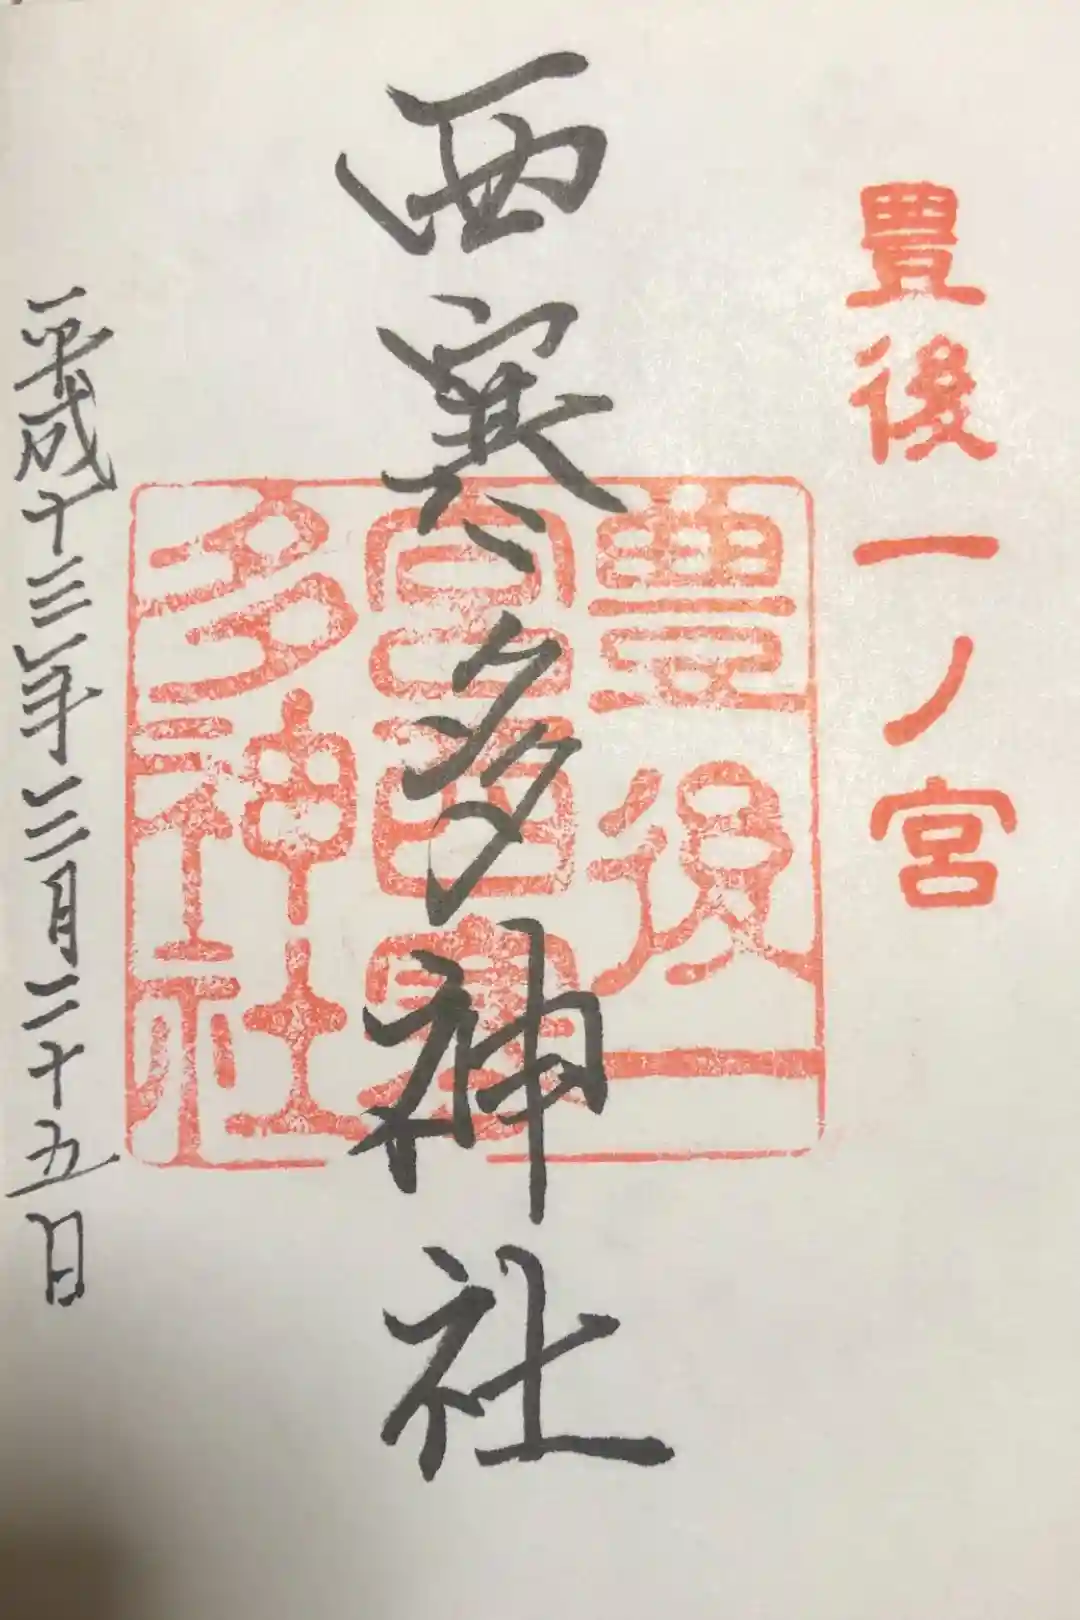 豊後一ノ宮
西寒多神社
豊後一
宮西寒
多神社
平成十三年三月二十五日